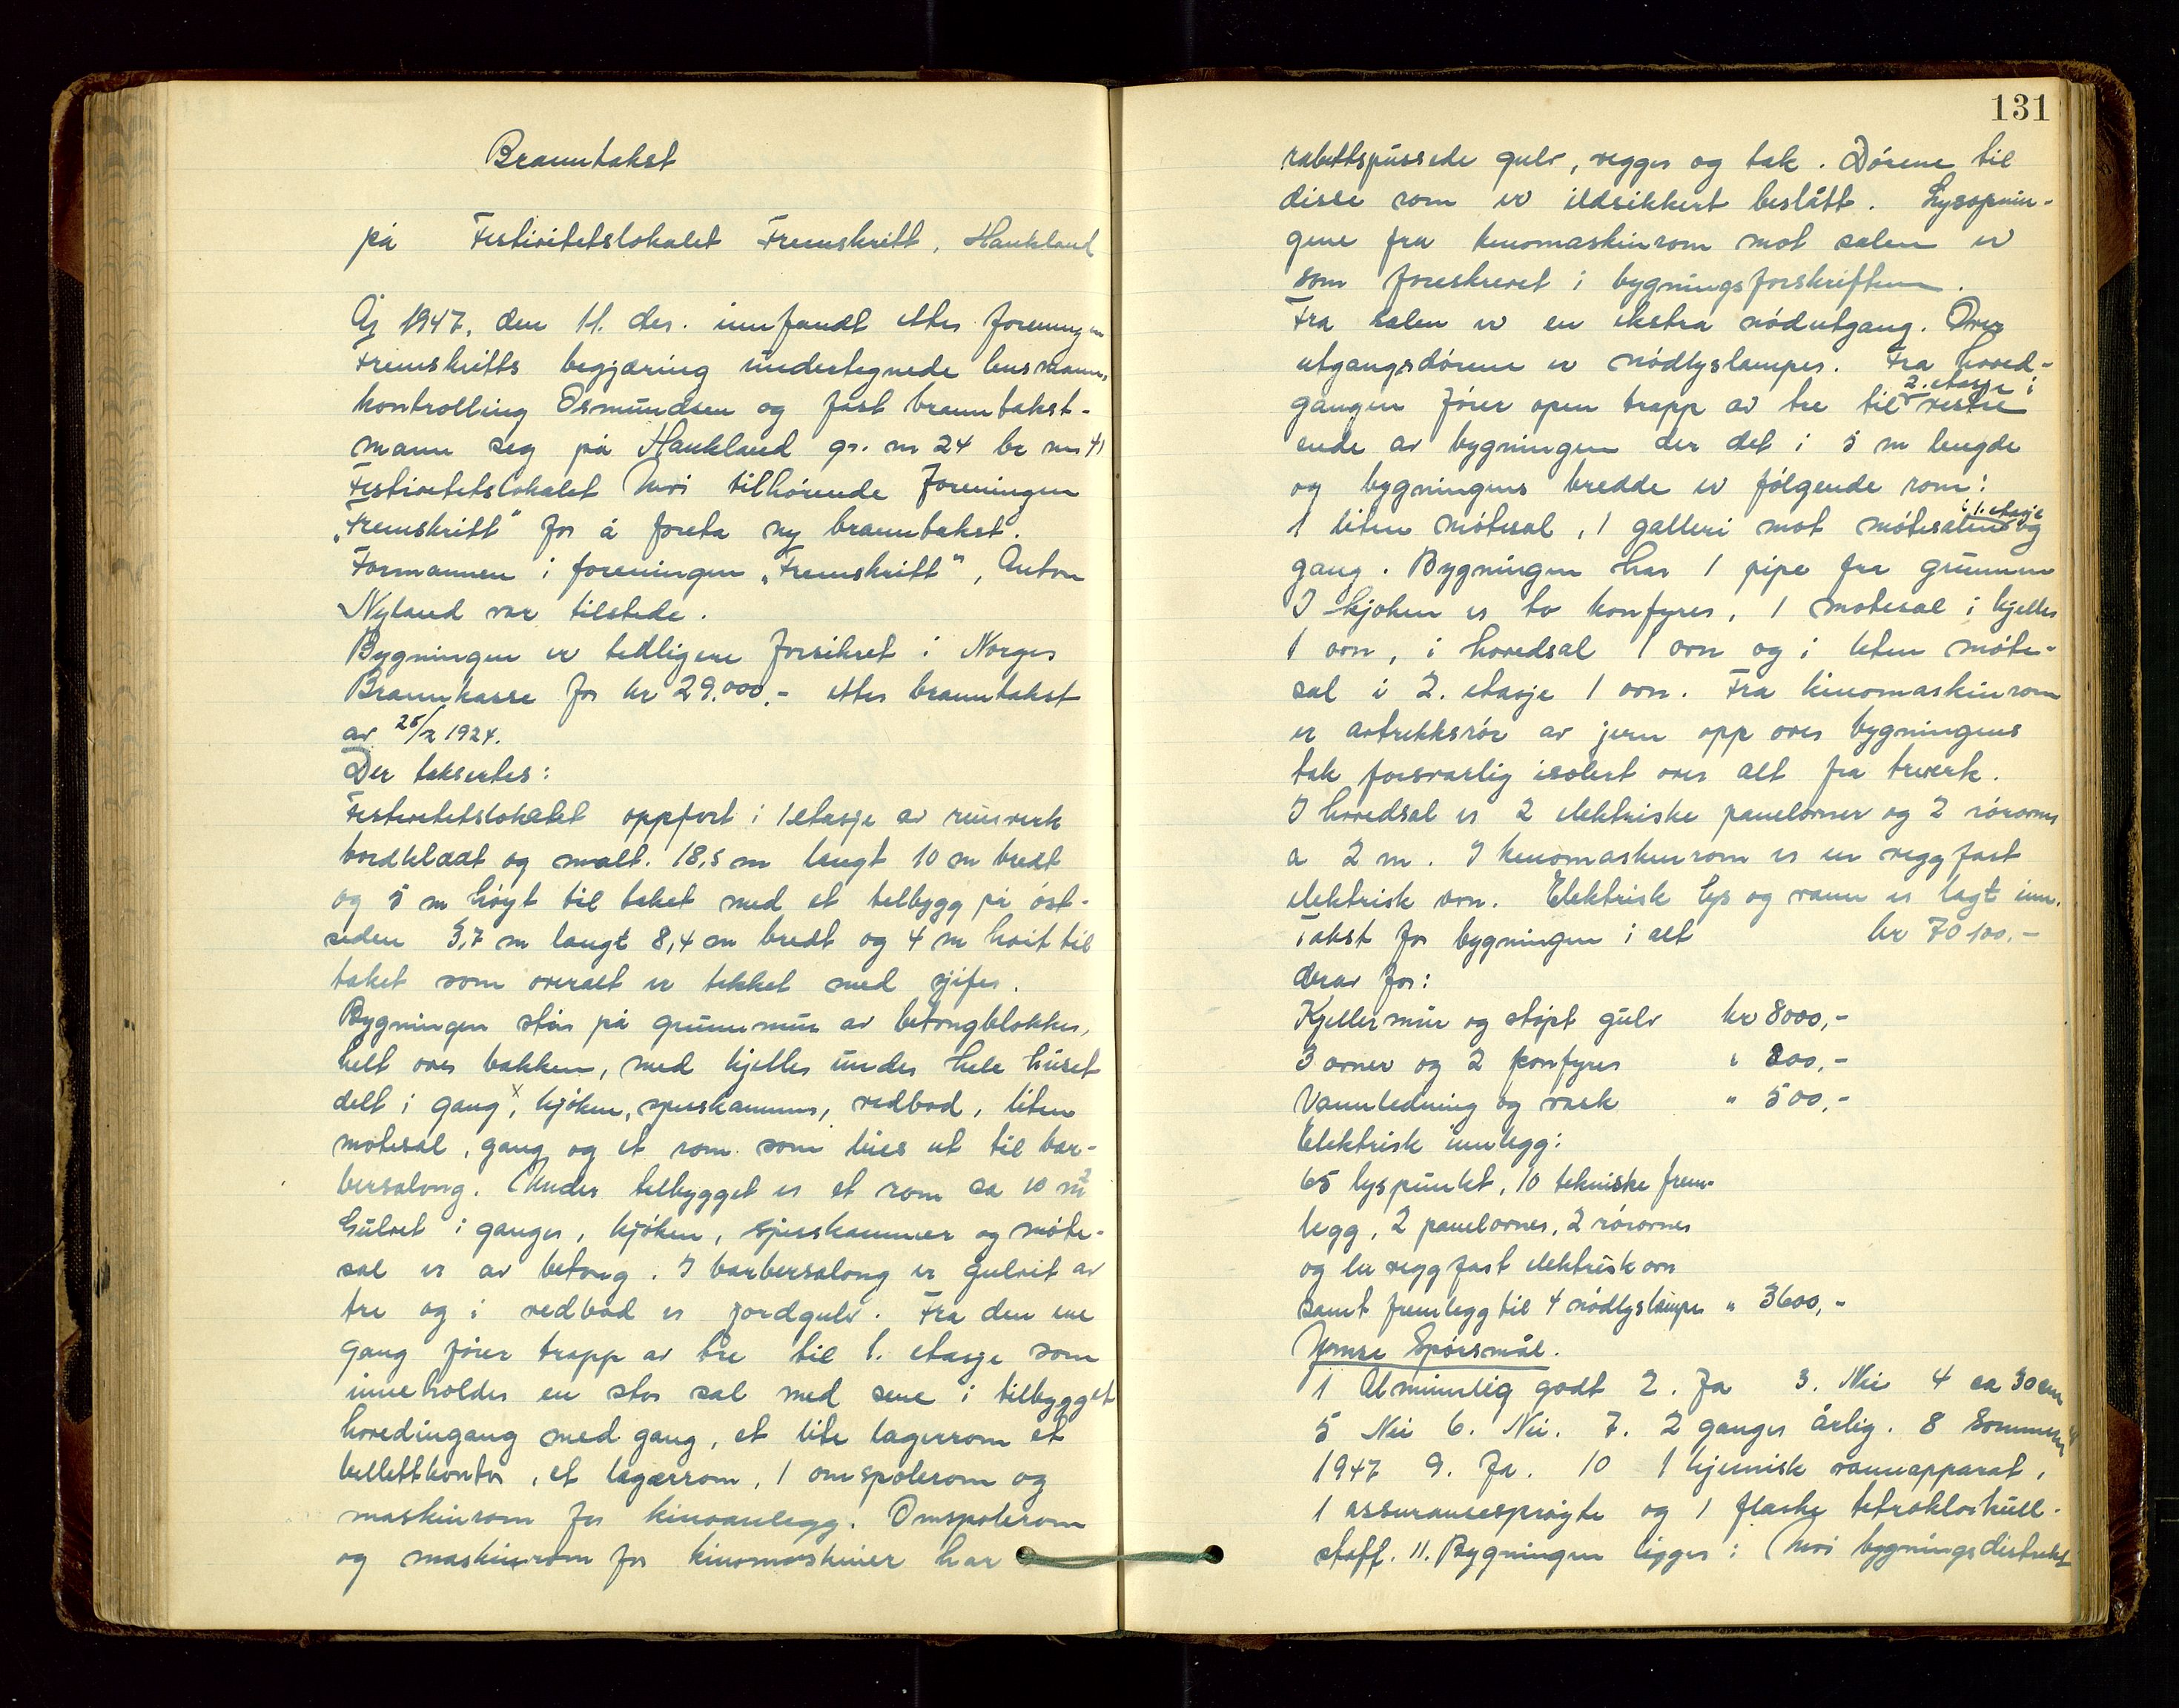 Branntakst
på Festivitetslokalet Fremskritt, Haukland
År 1947, den 11. des. innfandt etter foreningen
Fremskritts begjæring undertegnede lensmanns
kontrolling Osmundsen og fast branntakst-
mann seg på Haukland gr. nr 24 br nr 41
Festivitetslokalet Moi tilhørende Foreningen
„Fremskritt" for å foreta ny branntakst.
Formannen i foreningen „Fremskritt", Anton
Nyland var tilstede.
Bygningen er tidligere forsikret i Norges
Brannkasse for kr 29.000,- etter branntakst
av 1924.
Der taksertes:
Festivitetslokalet oppført i 1.etasje av reisverk
bordkledt og malt. 18,5 m langt 10 m bredt
og 5 m høyt til taket med et tilbygg på øst-
siden 3,7 m langt 8,4 m bredt og 4 m høit til
taket som overalt er tekket med sjifer.
Bygningen står på grunnmur av betongblokker,
helt over bakken, med kjeller under hele huset
delt i gang x, kjøken, spiskammer, vedbod, liten
møtesal, gang og et rom som leies ut til bar-
bersalong. Under tilbygget er et rom ca 10 m²
Gulvet i ganger, kjøken, spisskammer og møte-
sal er av betong. I barbersalong er gulvet av
tre og i vedbod er jordgulv. Fra den ene
gang fører trapp av tre til 1. etasje som
inneholder en stor sal med sene i tilbygget
hovedingang med gang, et lite lagerrom et
billettkontor, et lagerrom, 1 omspolerom og
maskinrom for kinoanlegg. Omspolerom
og maskinrom for kinomaskiner har
131
rabittspussede gulv, vegger og tak. Dørene til
disse rom er ildsikkert beslått. Lysopnin-
gene fra kinomaskinrom mot salen er
som foreskrevet i bygningsforskriftene.
Fra salen er en ekstra nødutgang. Over
utgangsdørene er nødlyslamper. Fra hoved-
gangen fører open trapp av tre til 2. etasje i vestre
ende av bygningen der det i 5 m lengde
og bygningens bredde er følgende rom:
1 liten møtesal, 1 galleri mot møtesalen i 1. etasje og
gang. Bygningen har 1 pipe fra grunnen
I kjøken er to komfyrer, 1 møtesal i kjeller
1 ovn, i hovedsal 1 ovn og i liten møte-
sal i 2. etasje 1 ovn. Fra kinomaskinrom
er avtrekksrør av jern opp over bygningens
tak forsvarlig isolert over alt fra treverk.
I hovedsal er 2 elektriske panelovner og 2 rørovner
a 2 m. I kinomaskinrom er en veggfast
elektrisk ovn. Elektrisk lys og vann er lagt inn.
Takst for bygningen i alt kr 70 100.-
derav for:
Kjellermur og støpt gulv kr 8000,-
3 ovner og 2 komfyrer " 800,-
Vannledning og vask " 500,-
Elektrisk innlegg:
65 lyspunkt, 10 tekniske frem-
legg, 2 panelovner, 2 rørovner
og en veggfast elektrisk ovn
samt fremlegg til 4 nødlyslamper " 3600,-
Ymse Spørsmål.
1 Alminnelig godt 2. Ja 3. Nei 4 ca 30 cm
5 Nei 6. Nei. 7. 2 ganger årlig. 8 Sommeren
1947 9. Ja. 10 1 kjemisk vannapparat,
1 assuransesprøyte og 1 flaske tetraklorkull-
stoff. 11. Bygningen ligger i Moi bygningsdistrikt